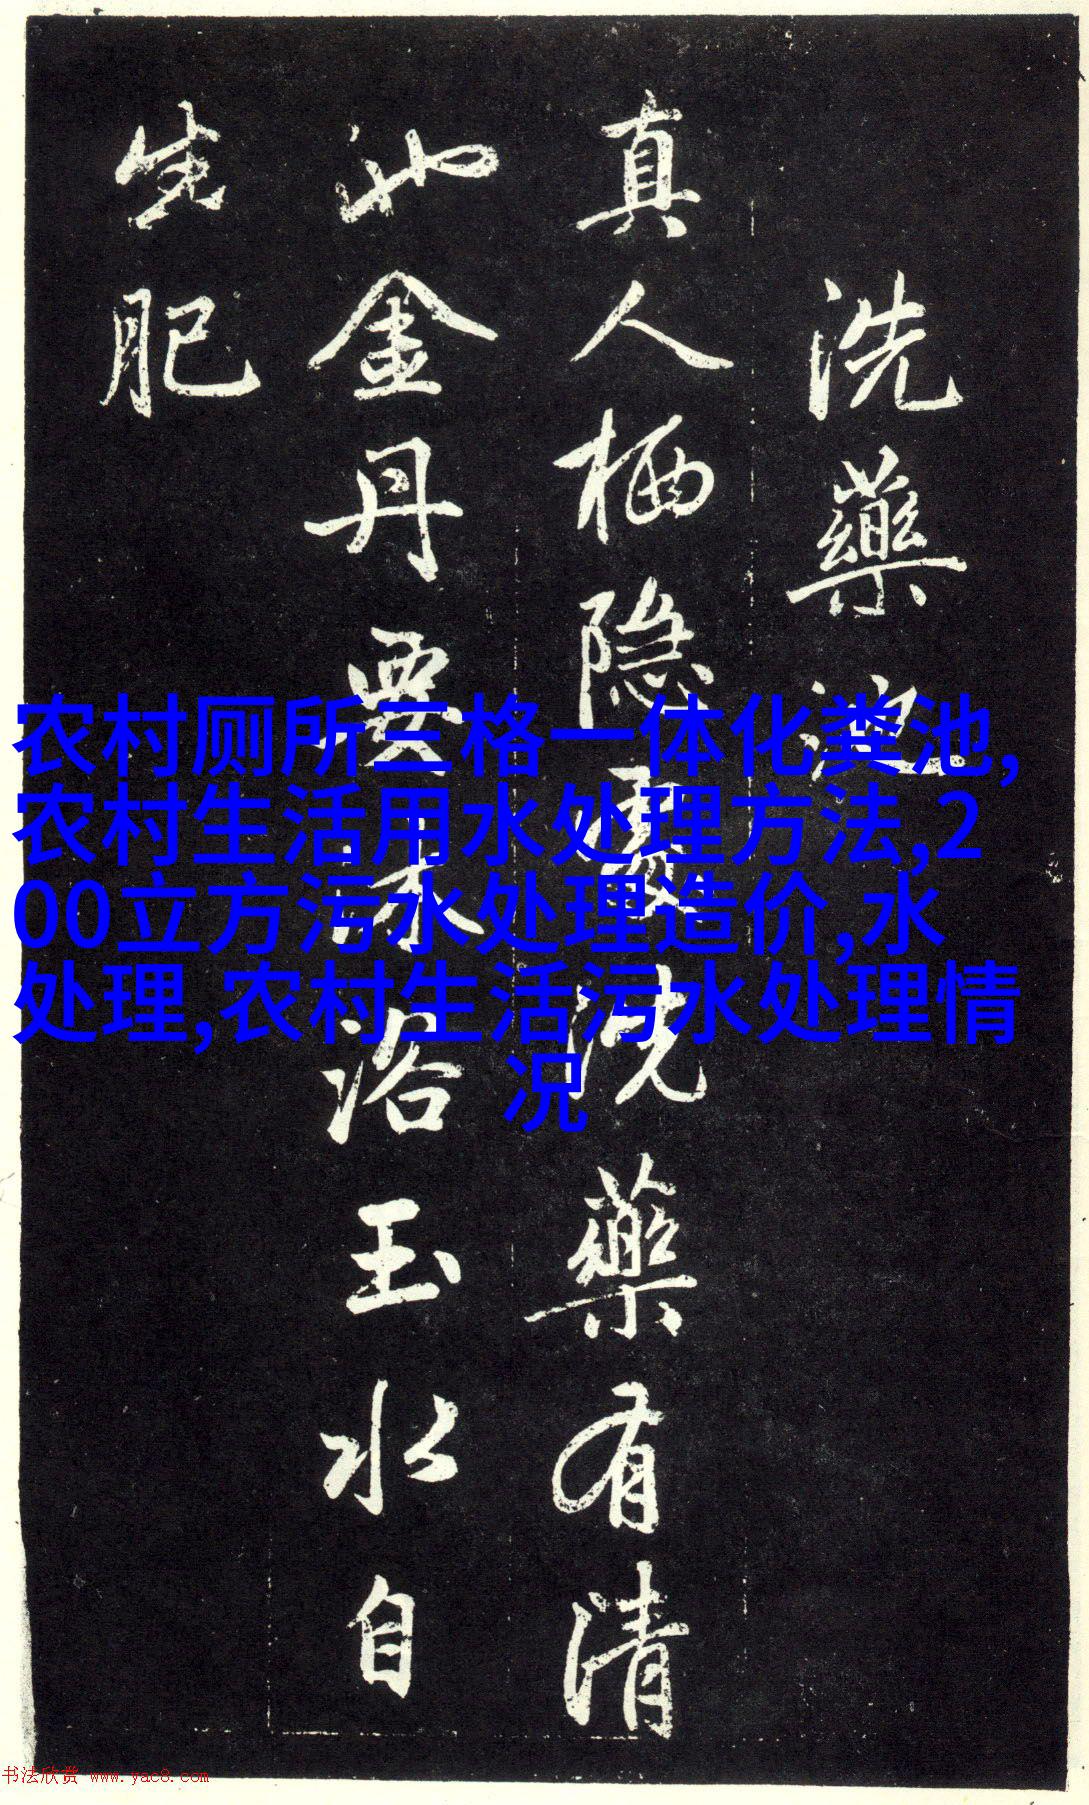 洗藥池
真人栖隐處洗藥有清
沘金丹要沐浴玉水自
生肥
农村厕所三格一体化粪池,
农村生活用水处理方法,2
00立方污水处理造价,水
处理,农村生活污水处理情
况
书法欣赏 www.yac8.com